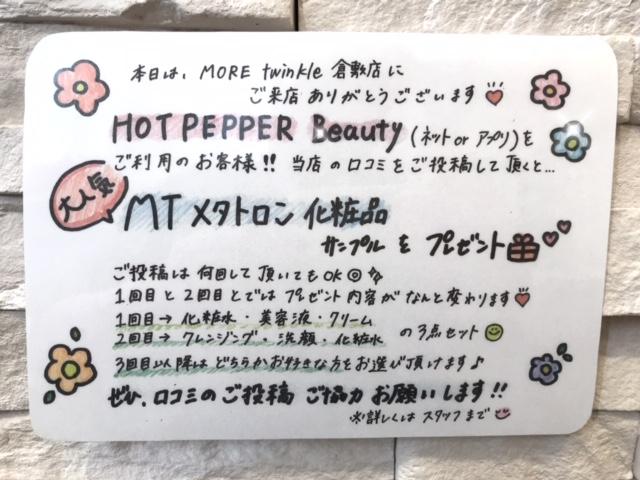 本日は、MORE twinkle 倉敷店に
ご来店ありがとうございます
HOT PEPPER Beauty (ネット or アプリ)を
ご利用のお客様!! 当店の口コミをご投稿して頂くと…
大人気
MT メタトロン 化粧品
サンプル を プレゼント
ご投稿は何回して頂いてもOK◎
1回目と2回目とではプレゼント内容がなんと変わります
1回目→ 化粧水・美容液・クリーム
2回目→ クレンジング・洗顔・化粧水 の3点セット
3回目以降はどちらかお好きな方をお選び頂けます♪
ぜひ、口コミのご投稿 ご協力お願いします!!
※詳しくはスタッフまで